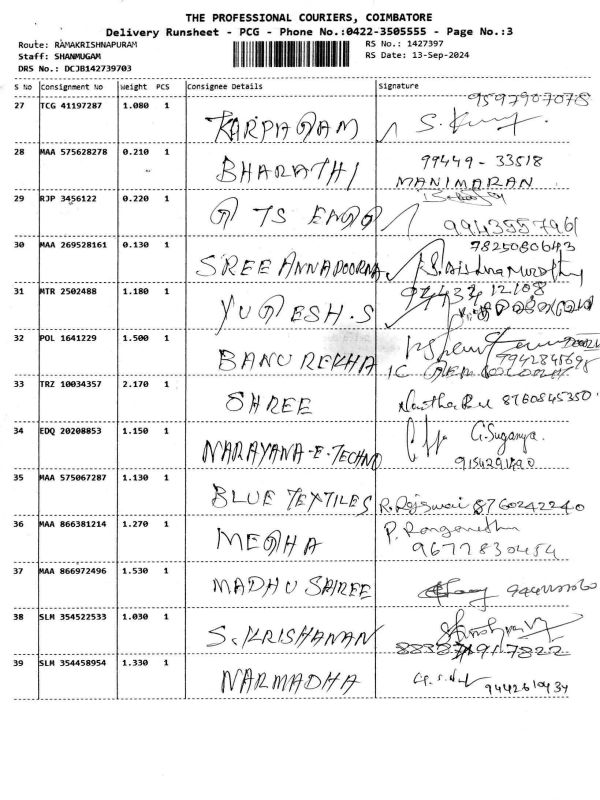 THE PROFESSIONAL COURIERS, COIMBATORE
Delivery Runsheet - PCG - Phone No.:0422-3505555 - Page No.:3
Route: RAMAKRISHNAPURAM RS No.: 1427397
Staff: SHANMUGAM RS Date: 13-Sep-2024
DRS No.: DCJB142739703
S No Consignment No Weight PCS Consignee Details Signature
27 TCG 41197287 1.080 1 KARPAGAM 9597907078
28 MAA 575628278 0.210 1 BHARATHI 99449-33518
MANIMARAN
29 RJP 3456122 0.220 1 G TS ENGG
9943557961
30 MAA 269528161 0.130 1 SREE ANNAPOORNA 7825080643
31 MTR 2502488 1.180 1 YUGESH.S
32 POL 1641229 1.500 1 BANU REKHA
7942845698
33 TRZ 10034357 2.170 1 SHREE 8760845350
34 EDQ 20208853 1.150 1 NARAYANA-E-TECHNO G.Suganya.
35 MAA 575067287 1.130 1 BLUE TEXTILES R. Rajswari 8760242240
36 MAA 866381214 1.270 1 MEGHA P. Ranganathan
9677830454
37 MAA 866972496 1.530 1 MADHU SHREE
38 SLM 354522533 1.030 1 S.KRISHANAN
39 SLM 354458954 1.330 1 NARMADHA 9442610434